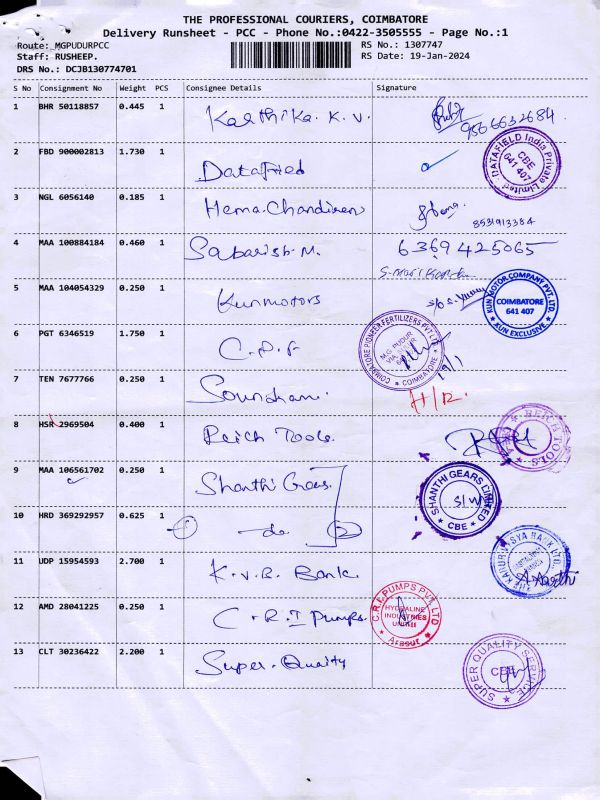 THE PROFESSIONAL COURIERS, COIMBATORE
Delivery Runsheet - PCC - Phone No.:0422-3505555 - Page No.:1
Route: MGPUDURPCC RS No.: 1307747
Staff: RUSHEEP. RS Date: 19-Jan-2024
DRS No.: DCJB130774701
S No Consignment No Weight PCS Consignee Details Signature
1 BHR 50118857 0.445 1 Karthika. K. V. 9566632684
2 FBD 900002813 1.730 1 Datafied DATAFIELD India Private Limited CBE 641 407
3 NGL 6056140 0.185 1 Hema.Chandiren Hema. 8531913384
4 MAA 100884184 0.460 1 Sabarish.M. 6369425065
5 MAA 104054329 0.250 1 Kunmotors KUN MOTOR COMPANY PVT. LTD. COIMBATORE 641 407 KUN EXCLUSIVE
6 PGT 6346519 1.750 1 C.P.F COIMBATORE PIONEER FERTILIZERS PVT LTD M.G. PUDUR COIMBATORE 19/1
7 TEN 7677766 0.250 1 H/R.
8 HSR 2969504 0.400 1 Reich Tools. REICH TOOLS
9 MAA 106561702 0.250 1 Shanthi Gears. SHANTHI GEARS LIMITED CBE
10 HRD 369292957 0.625 1 - do - 2
11 UDP 15954593 2.700 1 K.V.B. Bank. THE KARUR VYSYA BANK LTD.
12 AMD 28041225 0.250 1 C.R.I Pumps. C.R.I. PUMPS PVT. LTD HYDRALINE INDUSTRIES UNIT-II Arasur
13 CLT 30236422 2.200 1 Super.Quality SUPER QUALITY SERVICE CBE